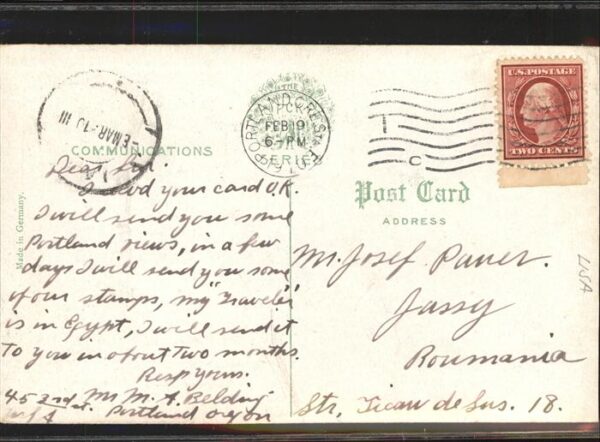 U.S. POSTAGE
TWO CENTS
PORTLAND, ORE. STA.
FEB 19
6-PM
1910
SERIES
MAR 10
COMMUNICATIONS
Post Card
ADDRESS
Made in Germany.
Dear Sir:
I recd your card O.K.
I will send you some
Portland views, in a few
days I will send you some
of our stamps, my "Traveler"
is in Egypt, I will send it
to you in about two months.
Resp yours.
Mr M. A. Belding
45 2nd st.
Portland Oregon
Mr. Josef Pauer.
Jassy
Roumania
Str. 18.
USA